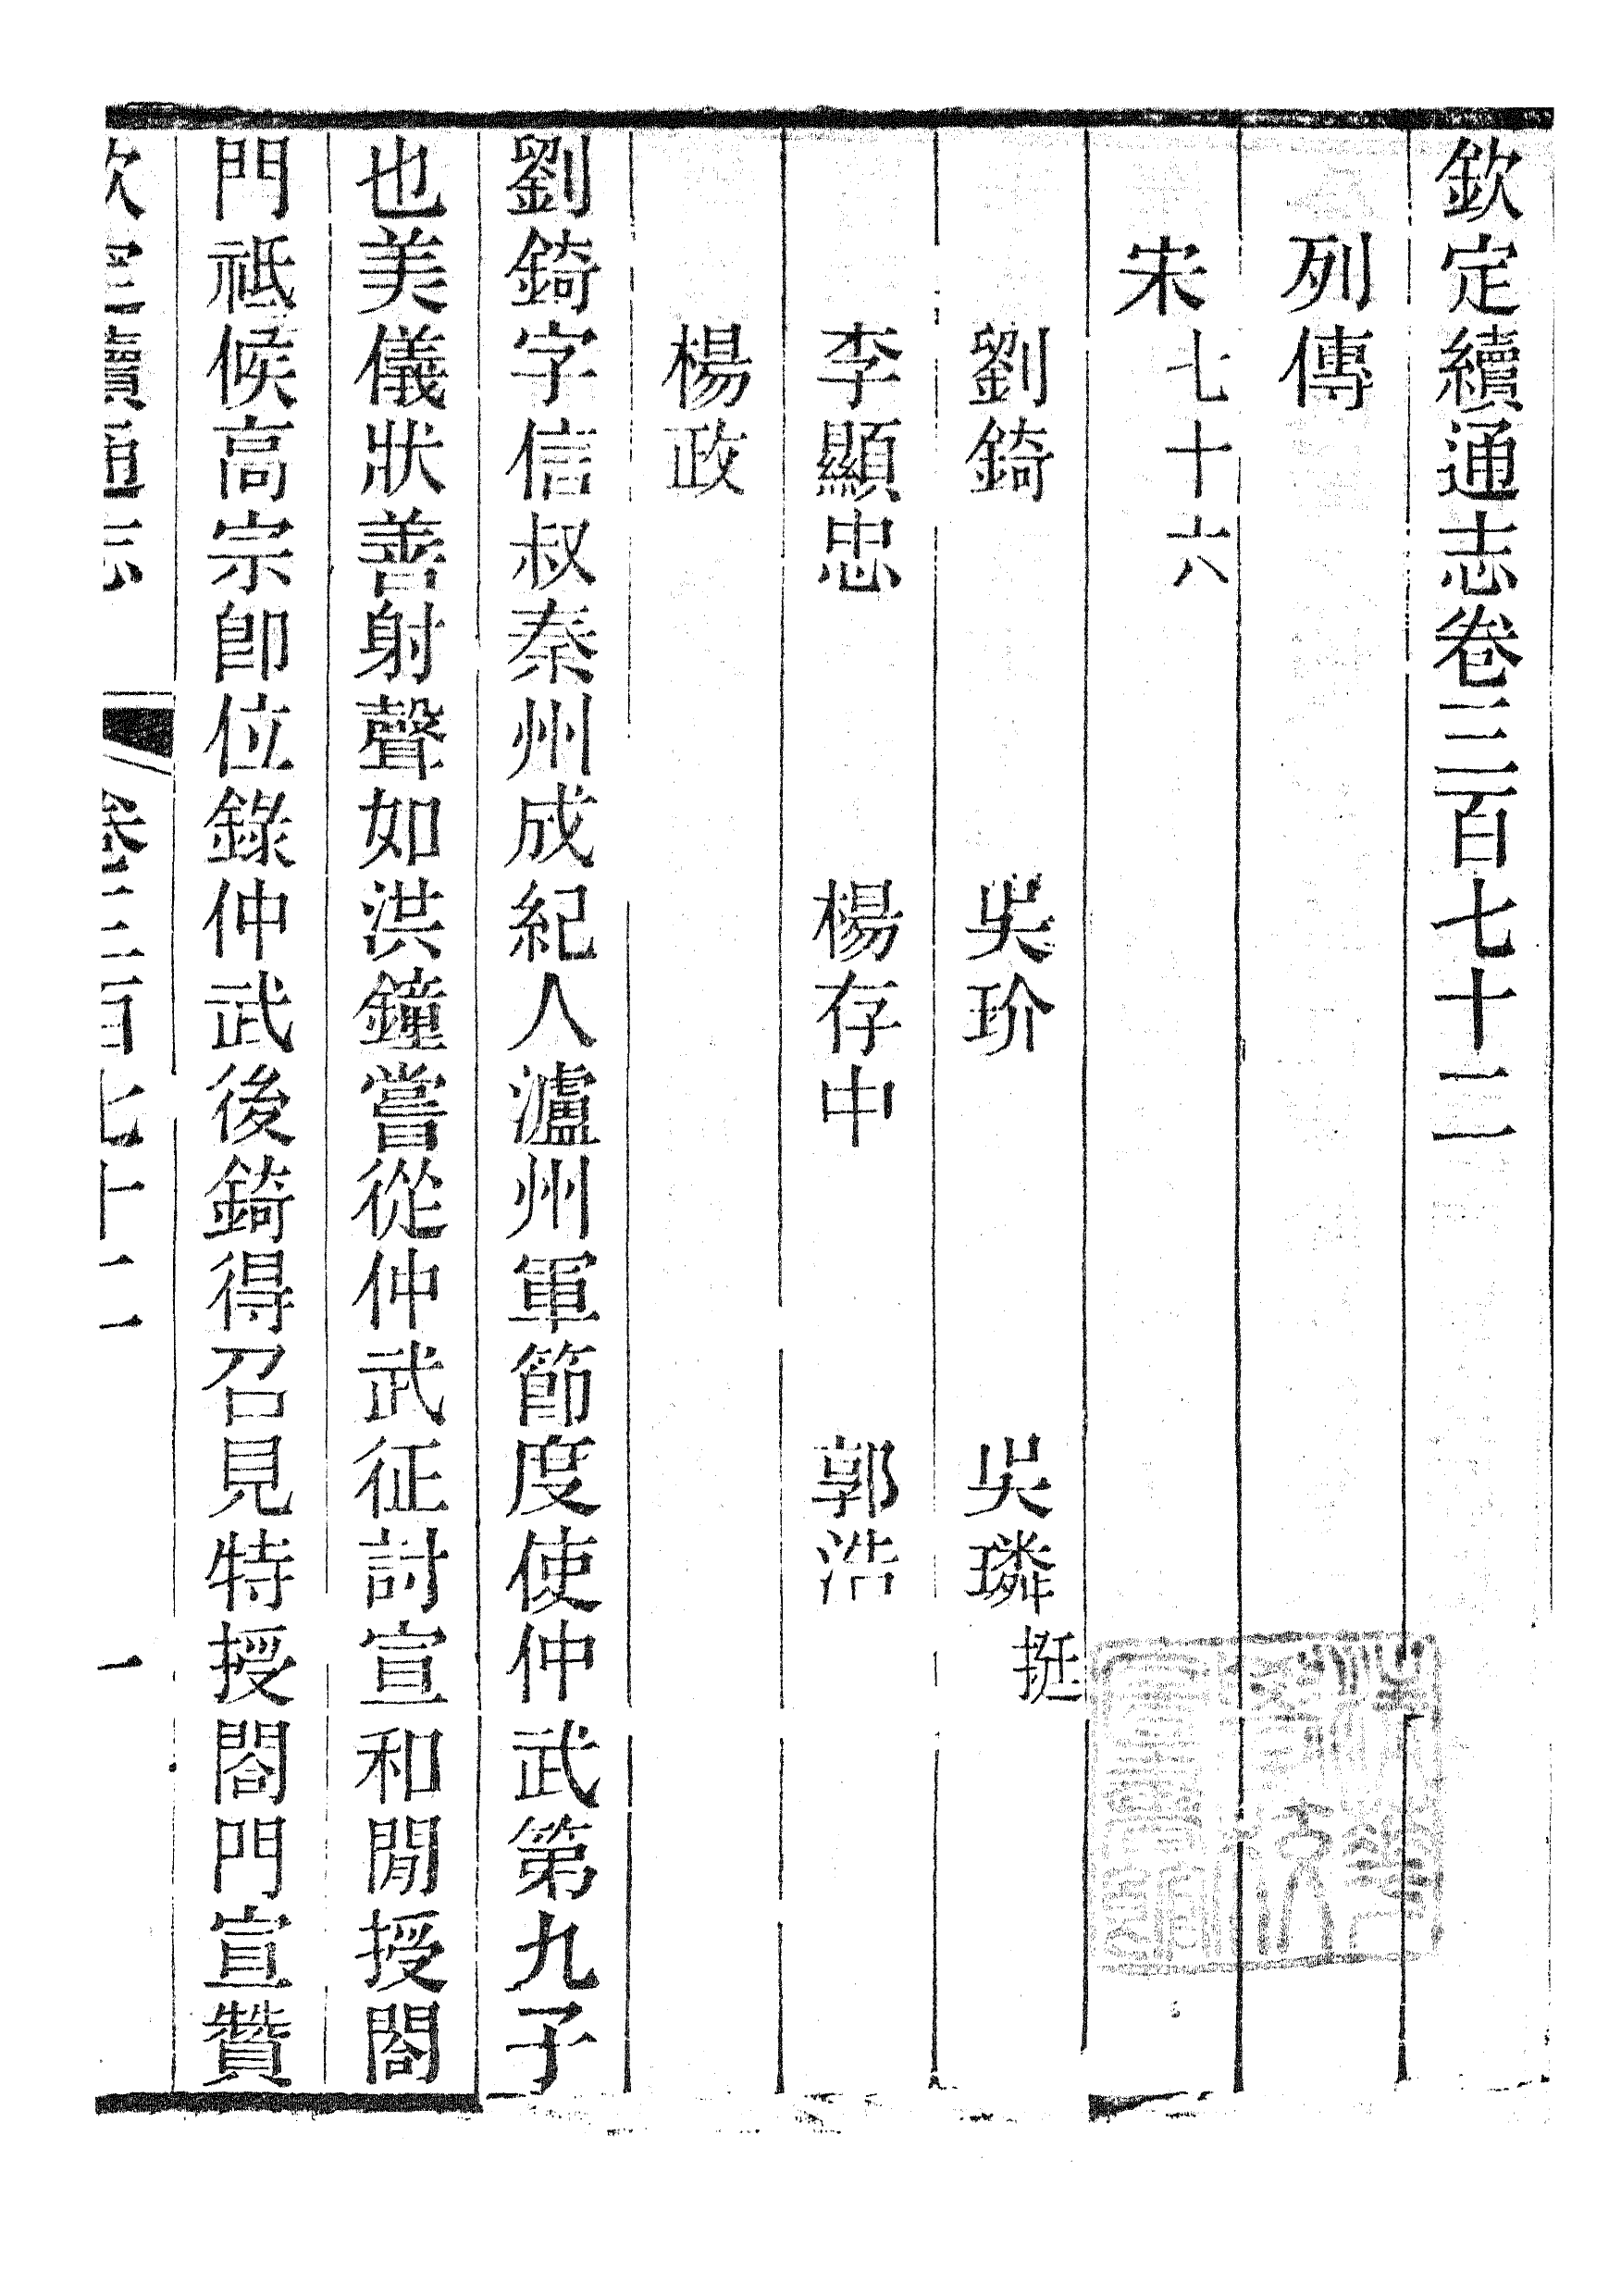 欽定續通志卷三百七十二
列傳
宋七十六
劉錡 吳玠 吳璘挺
李顯忠 楊存中 郭浩
楊政
劉錡字信叔秦州成紀人瀘州軍節度使仲武第九子
也美儀狀善射聲如洪鐘嘗從仲武征討宣和閒授閤
門祗候高宗卽位錄仲武後錡得召見特授閤門宣贊
欽定續通志 卷三百七十二 一